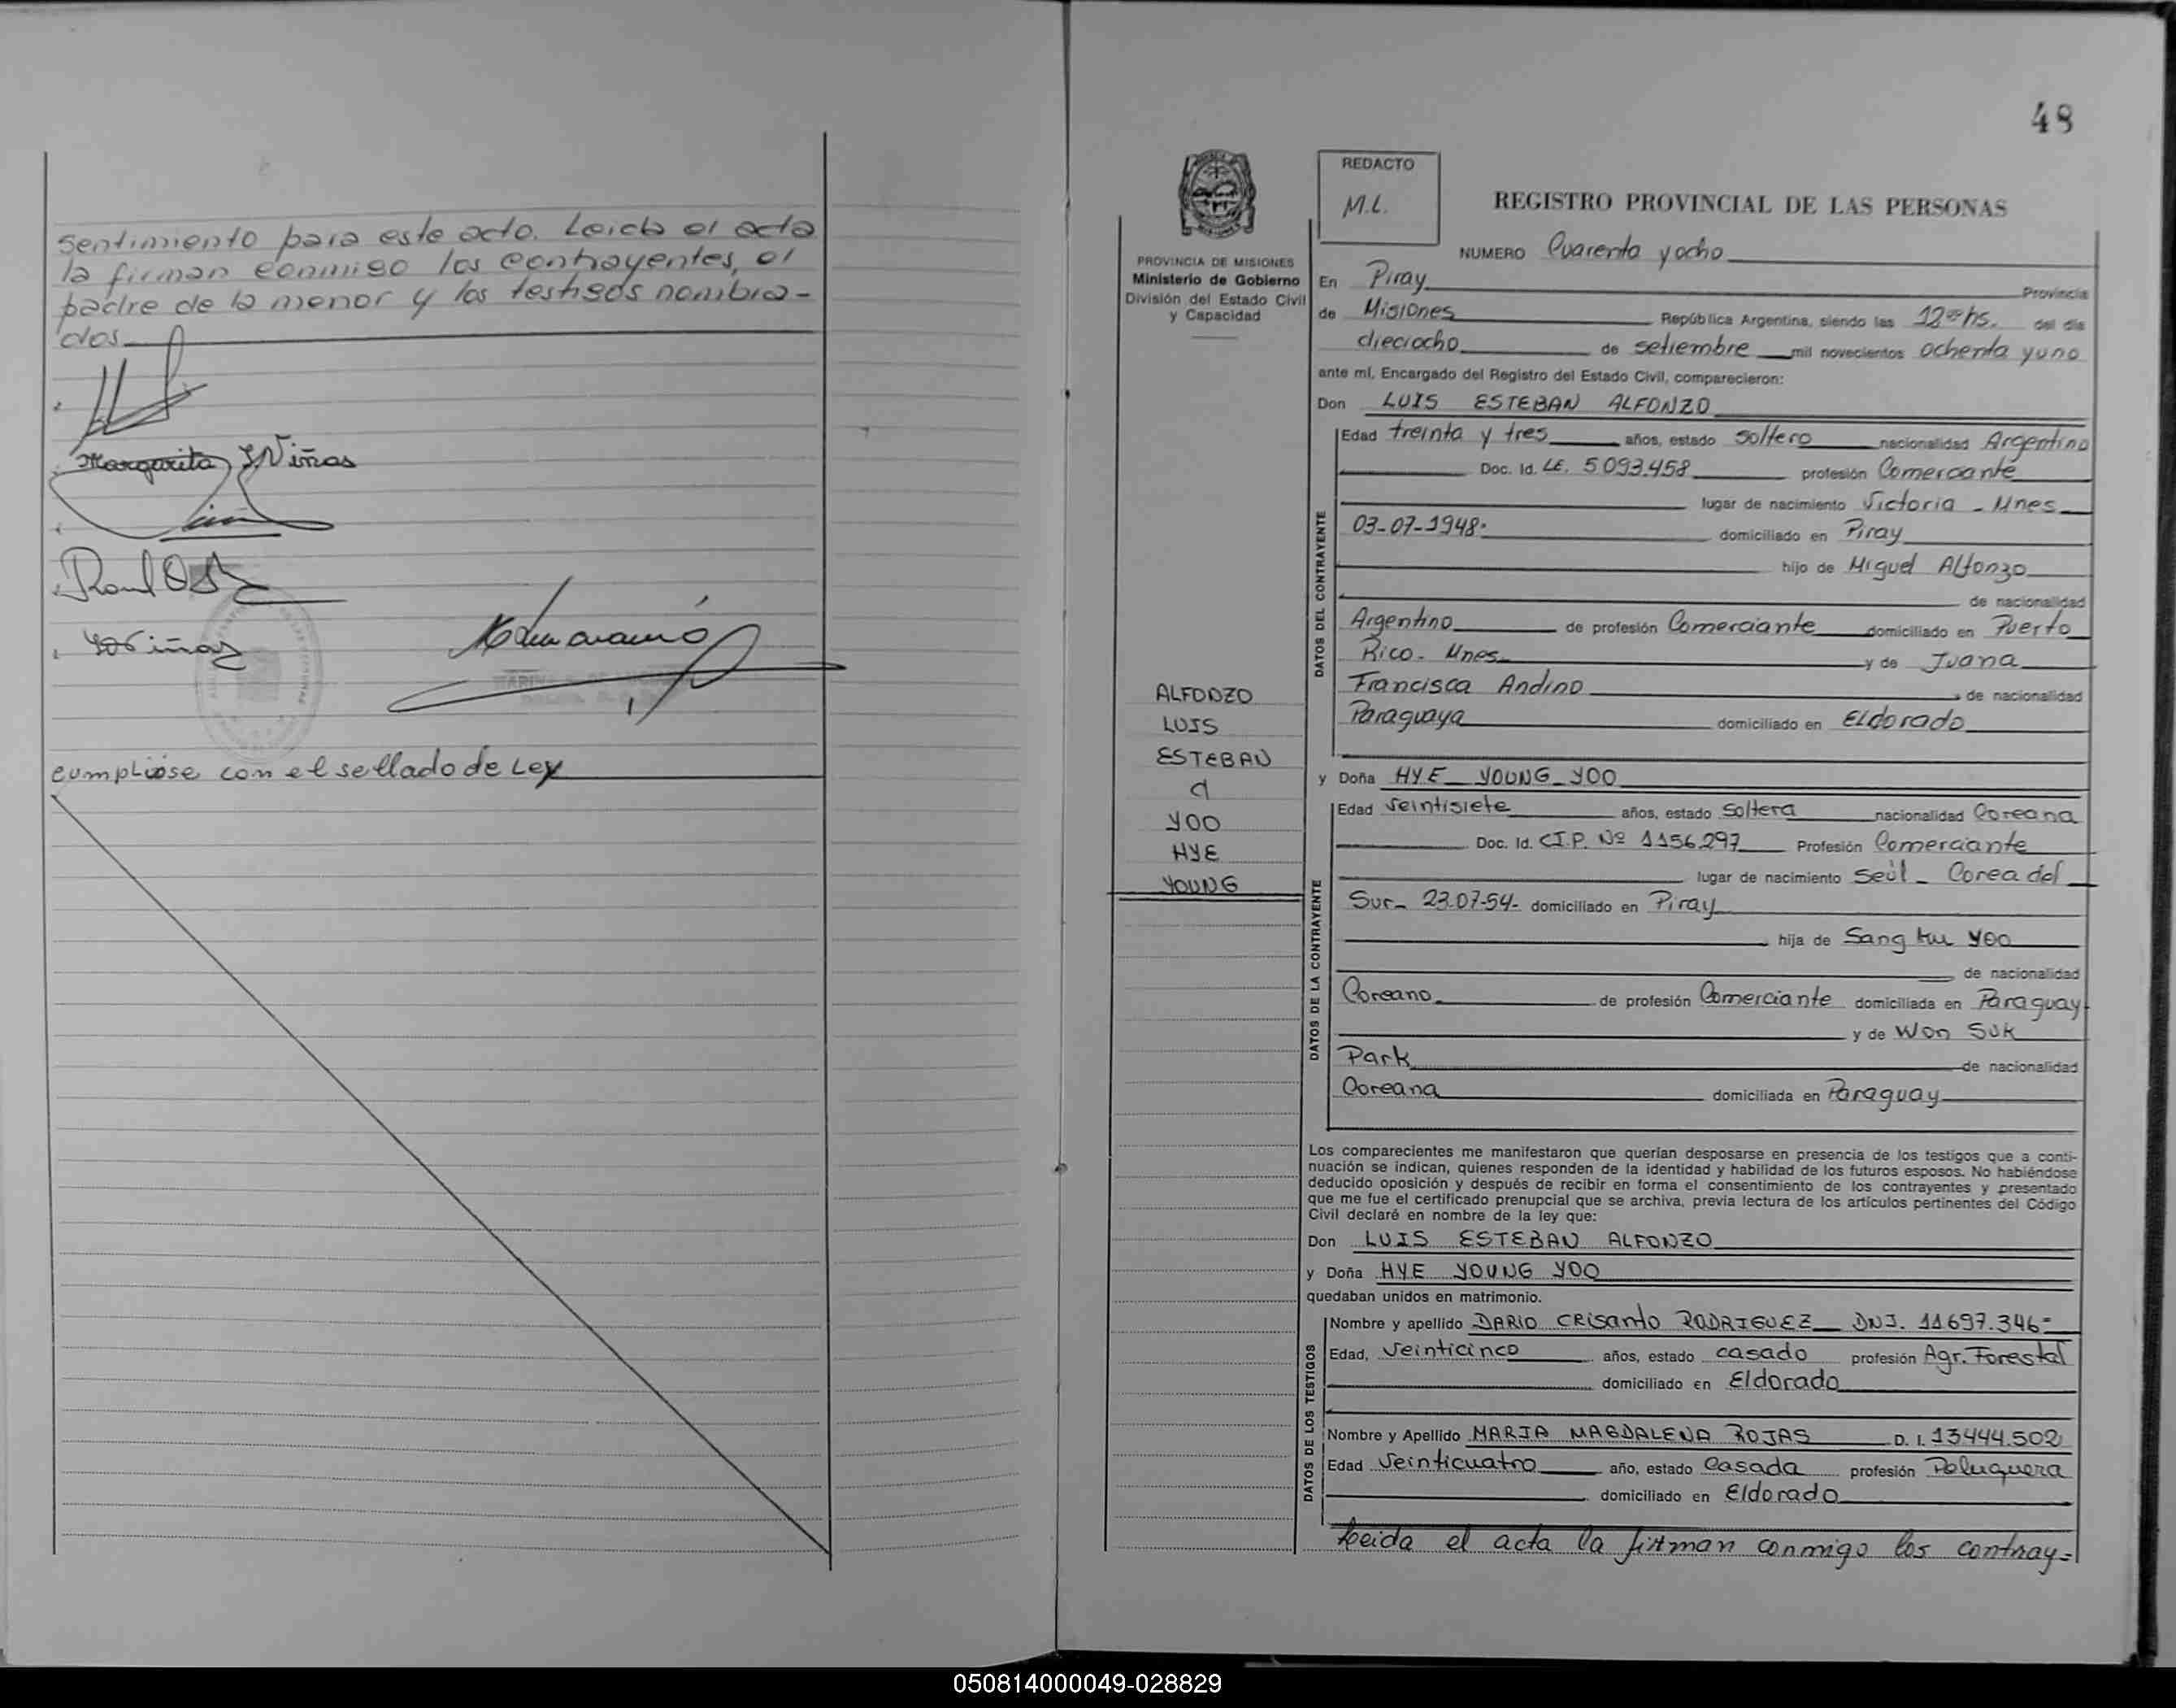 sentimiento para este acto. Leida el acta
la firman conmigo los contrayentes, el
padre de la menor y los testigos nombra-
dos.
Margarita J. Viñas
cumpliose con el sellado de Ley
48
REDACTO
M.L.
REGISTRO PROVINCIAL DE LAS PERSONAS
PROVINCIA DE MISIONES
Ministerio de Gobierno
División del Estado Civil
y Capacidad
ALFONZO
LUIS
ESTEBAN
C/
YOO
HYE
YOUNG
NUMERO Cuarenta y ocho
En Piray Provincia
de Misiones República Argentina, siendo las 12 hs. del día
dieciocho de setiembre mil novecientos ochenta y uno
ante mí, Encargado del Registro del Estado Civil, comparecieron:
Don LUIS ESTEBAN ALFONZO
DATOS DEL CONTRAYENTE
Edad treinta y tres años, estado soltero nacionalidad Argentino
Doc. Id. LE. 5.093.458 profesión Comerciante
lugar de nacimiento Victoria - Mnes
03-07-1948 domiciliado en Piray
hijo de Miguel Alfonzo
de nacionalidad
Argentino de profesión Comerciante domiciliado en Puerto
Rico - Mnes y de Juana
Francisca Andino de nacionalidad
Paraguaya domiciliado en Eldorado
y Doña HYE YOUNG YOO
DATOS DE LA CONTRAYENTE
Edad Veintisiete años, estado soltera nacionalidad Coreana
Doc. Id. C.I.P. Nº 1156.297 Profesión Comerciante
lugar de nacimiento Seúl - Corea del
Sur - 23.07-54- domiciliado en Piray
hija de Sang Yoo
de nacionalidad
Coreano de profesión Comerciante domiciliada en Paraguay
y de Won Suk
Park de nacionalidad
Coreana domiciliada en Paraguay
Los comparecientes me manifestaron que querían desposarse en presencia de los testigos que a conti-
nuación se indican, quienes responden de la identidad y habilidad de los futuros esposos. No habiéndose
deducido oposición y después de recibir en forma el consentimiento de los contrayentes y presentado
que me fue el certificado prenupcial que se archiva, previa lectura de los artículos pertinentes del Código
Civil declaré en nombre de la ley que:
Don LUIS ESTEBAN ALFONZO
y Doña HYE YOUNG YOO
quedaban unidos en matrimonio.
DATOS DE LOS TESTIGOS
Nombre y apellido DARIO CRISANTO RODRIGUEZ DNI. 11697.346
Edad, Veinticinco años, estado casado profesión Agr. Forestal
domiciliado en Eldorado
Nombre y Apellido MARIA MAGDALENA ROJAS D. I. 13444.502
Edad Veinticuatro año, estado Casada profesión Peluquera
domiciliado en Eldorado
Leida el acta la firman conmigo los contray=
050814000049-028829